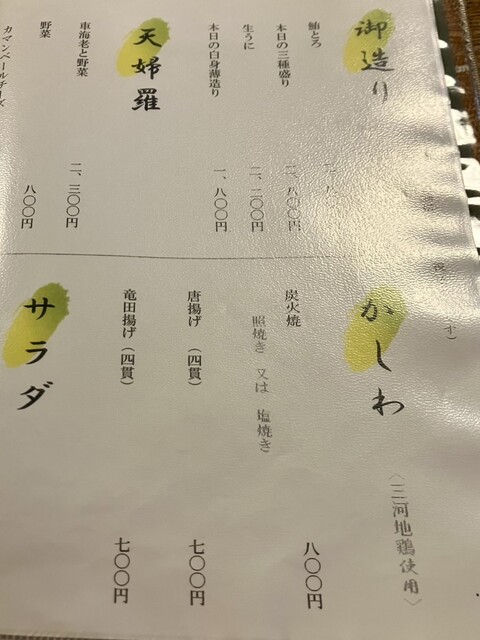 御造り
鮪とろ
本日の三種盛り 二、八〇〇円
生うに 二、二〇〇円
本日の白身薄造り 一、八〇〇円
天婦羅
車海老と野菜 二、三〇〇円
野菜 八〇〇円
カマンベールチーズ
かしわ
〈三河地鶏使用〉
炭火焼 八〇〇円
照焼き 又は 塩焼き
唐揚げ（四貫） 七〇〇円
竜田揚げ（四貫） 七〇〇円
サラダ